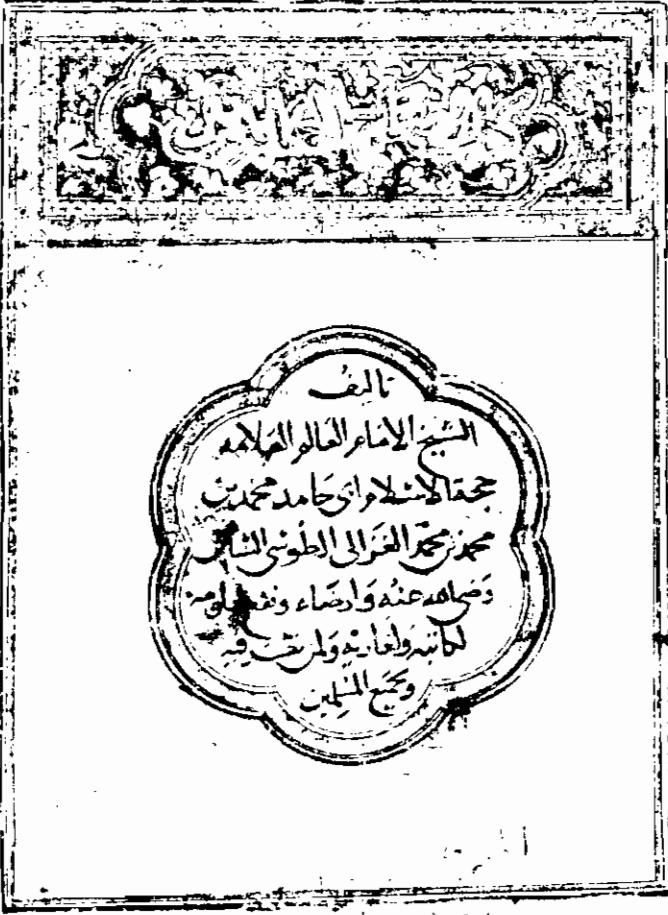 تاليف
الشيخ الامام العالم العلامه
حجة الاسلام ابى حامد محمد بن
محمد بن محمد الغزالى الطوسى الشافعى
رضى الله عنه وارضاه ونفع بعلومه
لكاتبه ولقارئه ولمن نظر فيه
ولجميع المسلمين